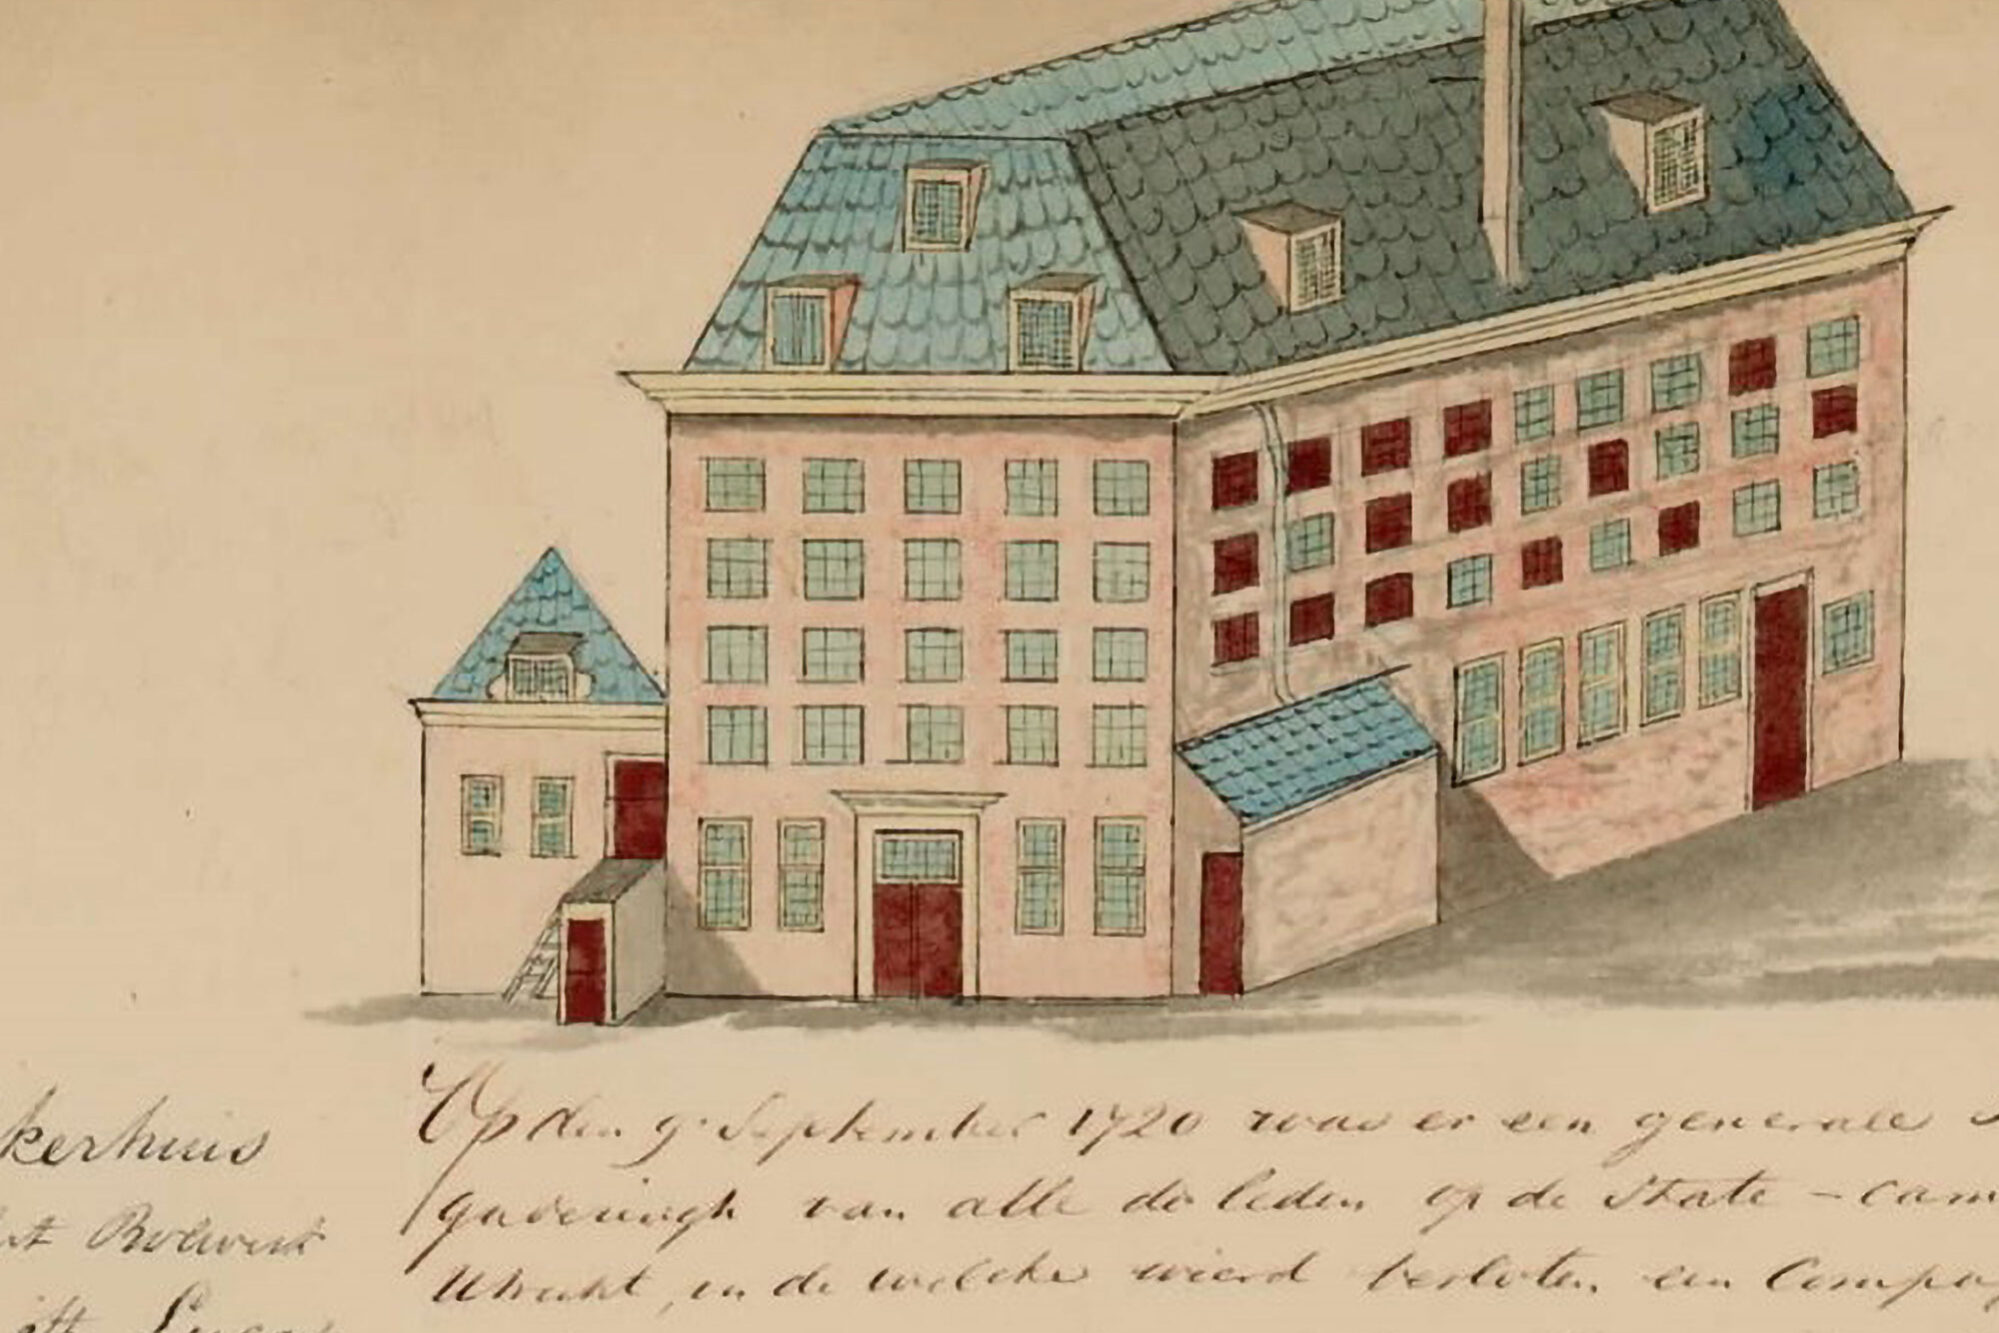 kerhuis
Bolwerk
Op den 9 September 1720 was er een generale
gaderingh van alle de leden op de State - cam
Utrecht, in de welcke wierd besloten een Compa